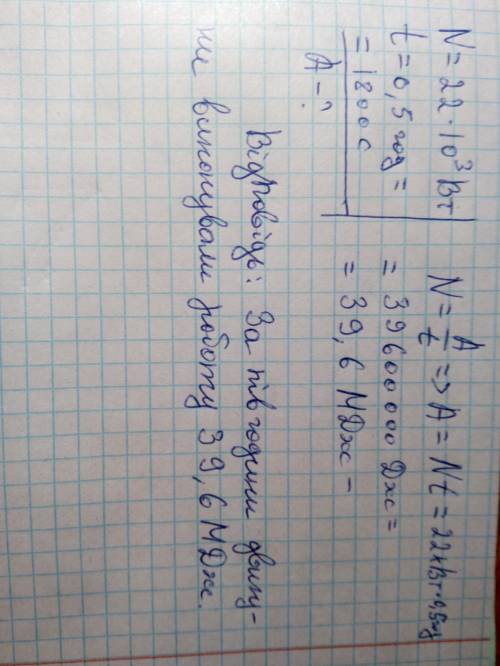 N = 22·10³ Вт
t = 0,5 год =
= 1800 с
A - ?
N = A/t => A = Nt = 22кВт·0,5год
= 39600000 Дж =
= 39,6 МДж -
Відповідь: За пів години двигу-
ни виконували роботу 39,6 МДж.